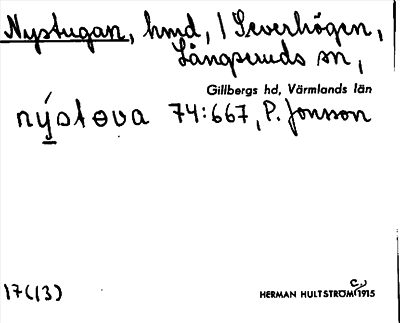 Nystugan, hmd, / Severhögen,
Långseruds sn,
Gillbergs hd, Värmlands län
nýstova 74:667, P. Jonsson
17(13)
HERMAN HULTSTRÖM 1915